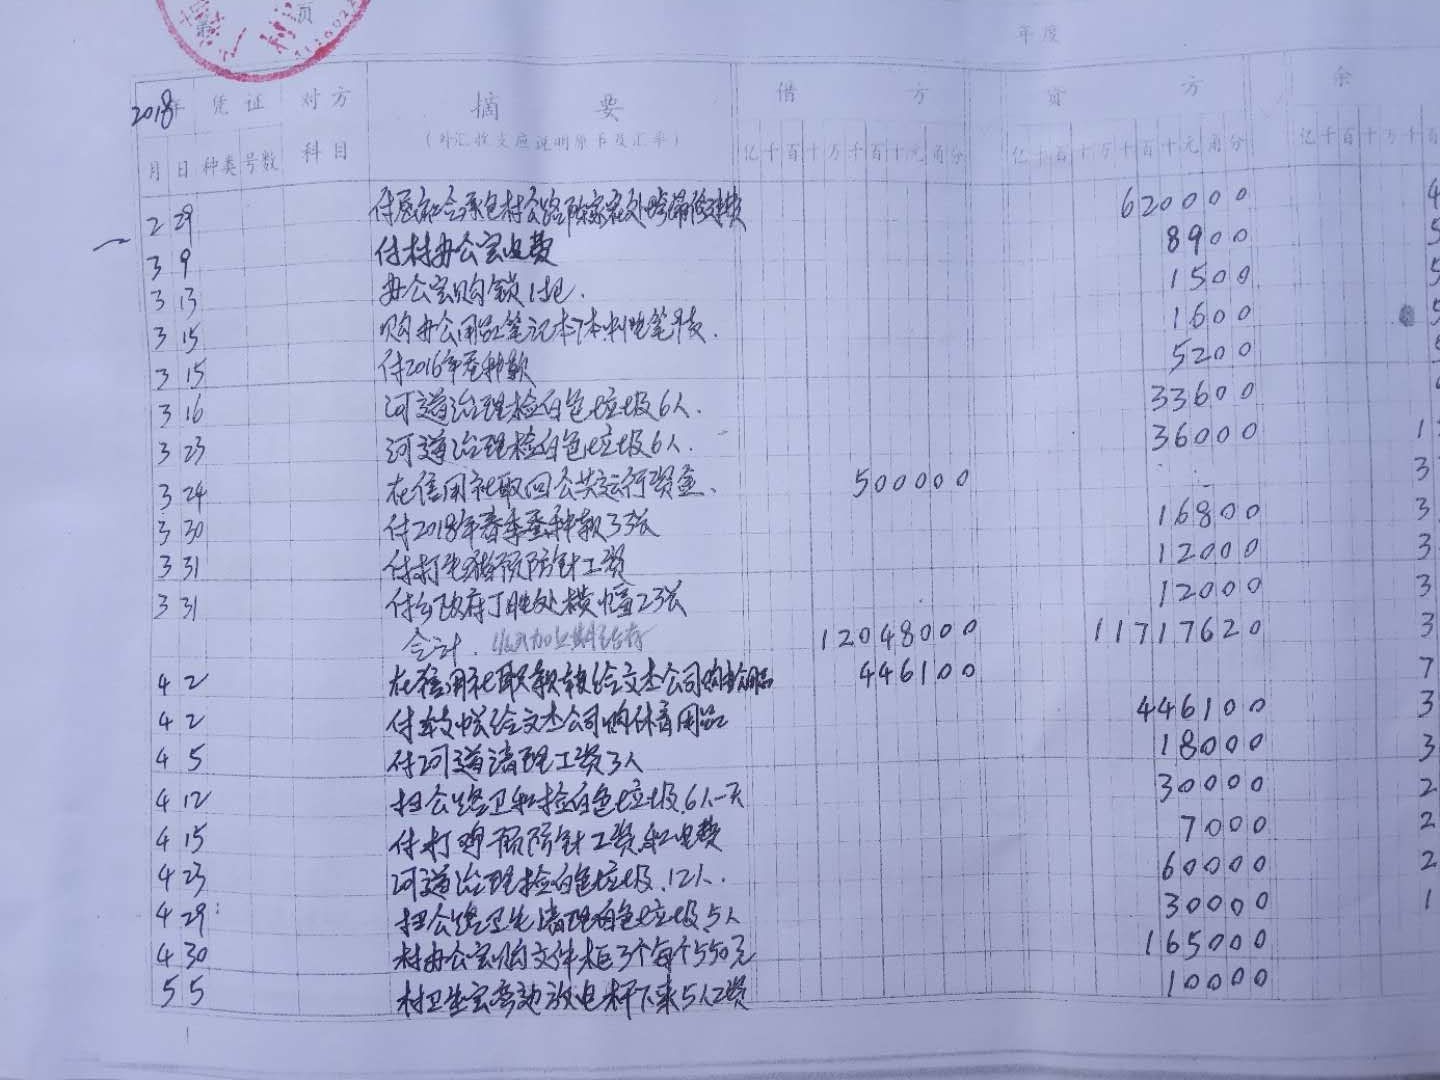 第 页
年度
2018年 凭证 对方 摘要 借方 贷方 余
(外汇收支应说明原币及汇率)
月 日 种类 号数 科目 亿千百十万千百十元角分 亿千百十万千百十元角分 亿千百十万千百
2 29 620000 4
3 9 付村办公室电费 8900 5
3 13 办公室购锁1把. 1500 5
3 15 购办公用品笔记本7本. 1600 5
3 15 付2016年蚕种款 5200
3 16 河道治理捡白色垃圾6人. 33600
3 23 河道治理捡白色垃圾6人. 36000 1
3 24 在信用社取回公共运行资金、 500000 3
3 30 付2018年春季蚕种款33张 16800 3
3 31 付打生猪预防针工资 12000 3
3 31 付乡政府丁胜处横幅23张 12000 3
合计. 12048000 11717620 3
4 2 在信用社取款转给文杰公司购 446100 7
4 2 付转给文杰公司购体育用品 446100 3
4 5 付河道清理工资3人 18000 3
4 12 扫公路卫和捡白色垃圾.6人一天 30000 2
4 15 付打鸡预防针工资和电费 7000 2
4 23 河道治理捡白色垃圾.12人. 60000 2
4 29 扫公路卫生清理白色垃圾5人 30000 1
4 30 村办公室购文件柜3个每个550元 165000
5 5 村卫生室旁边放电杆下来5人工资 10000